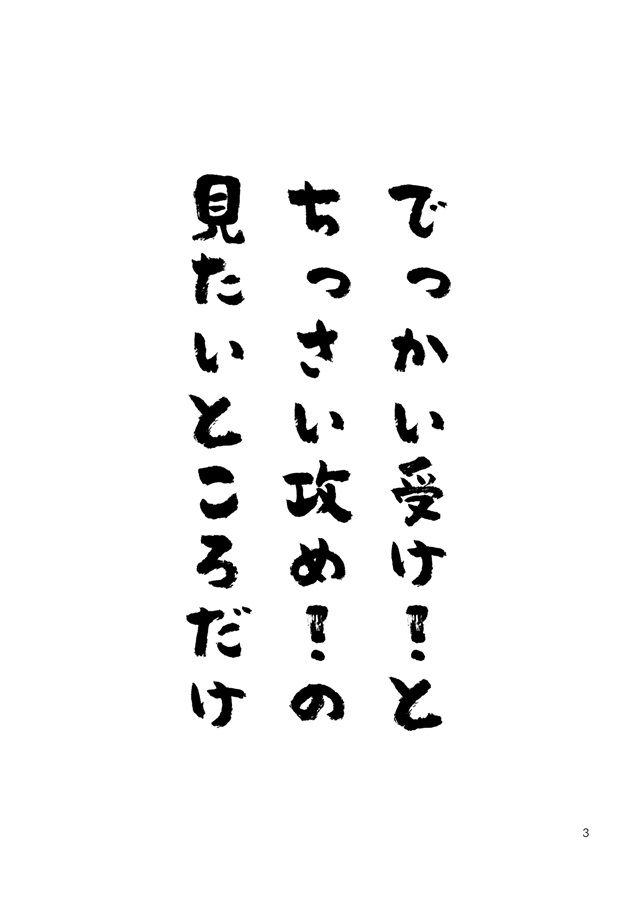 でっかい受け！と
ちっさい攻め！の
見たいところだけ
3